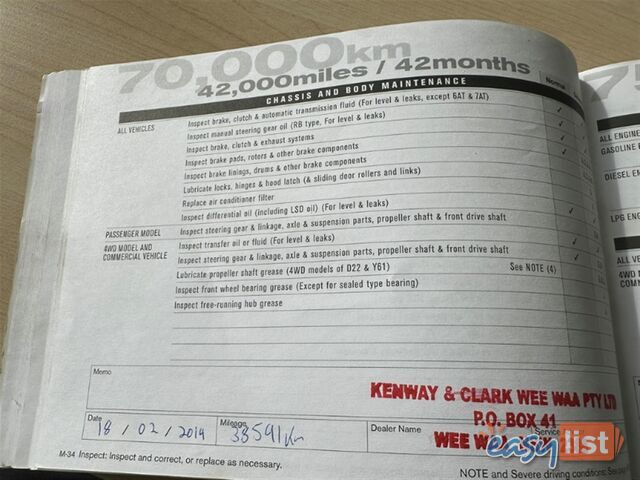 70,000km
42,000miles / 42months
CHASSIS AND BODY MAINTENANCE
Normal
ALL VEHICLES
Inspect brake, clutch & automatic transmission fluid (For level & leaks, except 6AT & 7AT)
Inspect manual steering gear oil (RB type, For level & leaks)
Inspect brake, clutch & exhaust systems
Inspect brake pads, rotors & other brake components
Inspect brake linings, drums & other brake components
Lubricate locks, hinges & hood latch (& sliding door rollers and links)
Replace air conditioner filter
Inspect differential oil (including LSD oil) (For level & leaks)
PASSENGER MODEL
Inspect steering gear & linkage, axle & suspension parts, propeller shaft & front drive shaft
4WD MODEL AND
COMMERCIAL VEHICLE
Inspect transfer oil or fluid (For level & leaks)
Inspect steering gear & linkage, axle & suspension parts, propeller shaft & front drive shaft
Lubricate propeller shaft grease (4WD models of D22 & Y61) See NOTE (4)
Inspect front wheel bearing grease (Except for sealed type bearing)
Inspect free-running hub grease
Memo
KENWAY & CLARK WEE WAA PTY LTD
P.O. BOX 41
WEE
Date
18 / 02 / 2014
Mileage
38591km
Dealer Name
Service
M-34 Inspect: Inspect and correct, or replace as necessary.
NOTE and Severe driving conditions: See
75
ALL ENGINE
GASOLINE
DIESEL
LPG ENGINE
ALL
4WD
COMM
easylist